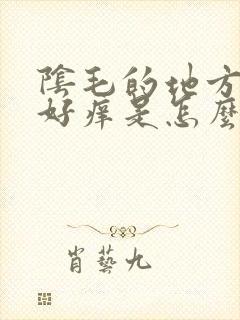 陰毛的地方
好痒是怎麼
肖藝九